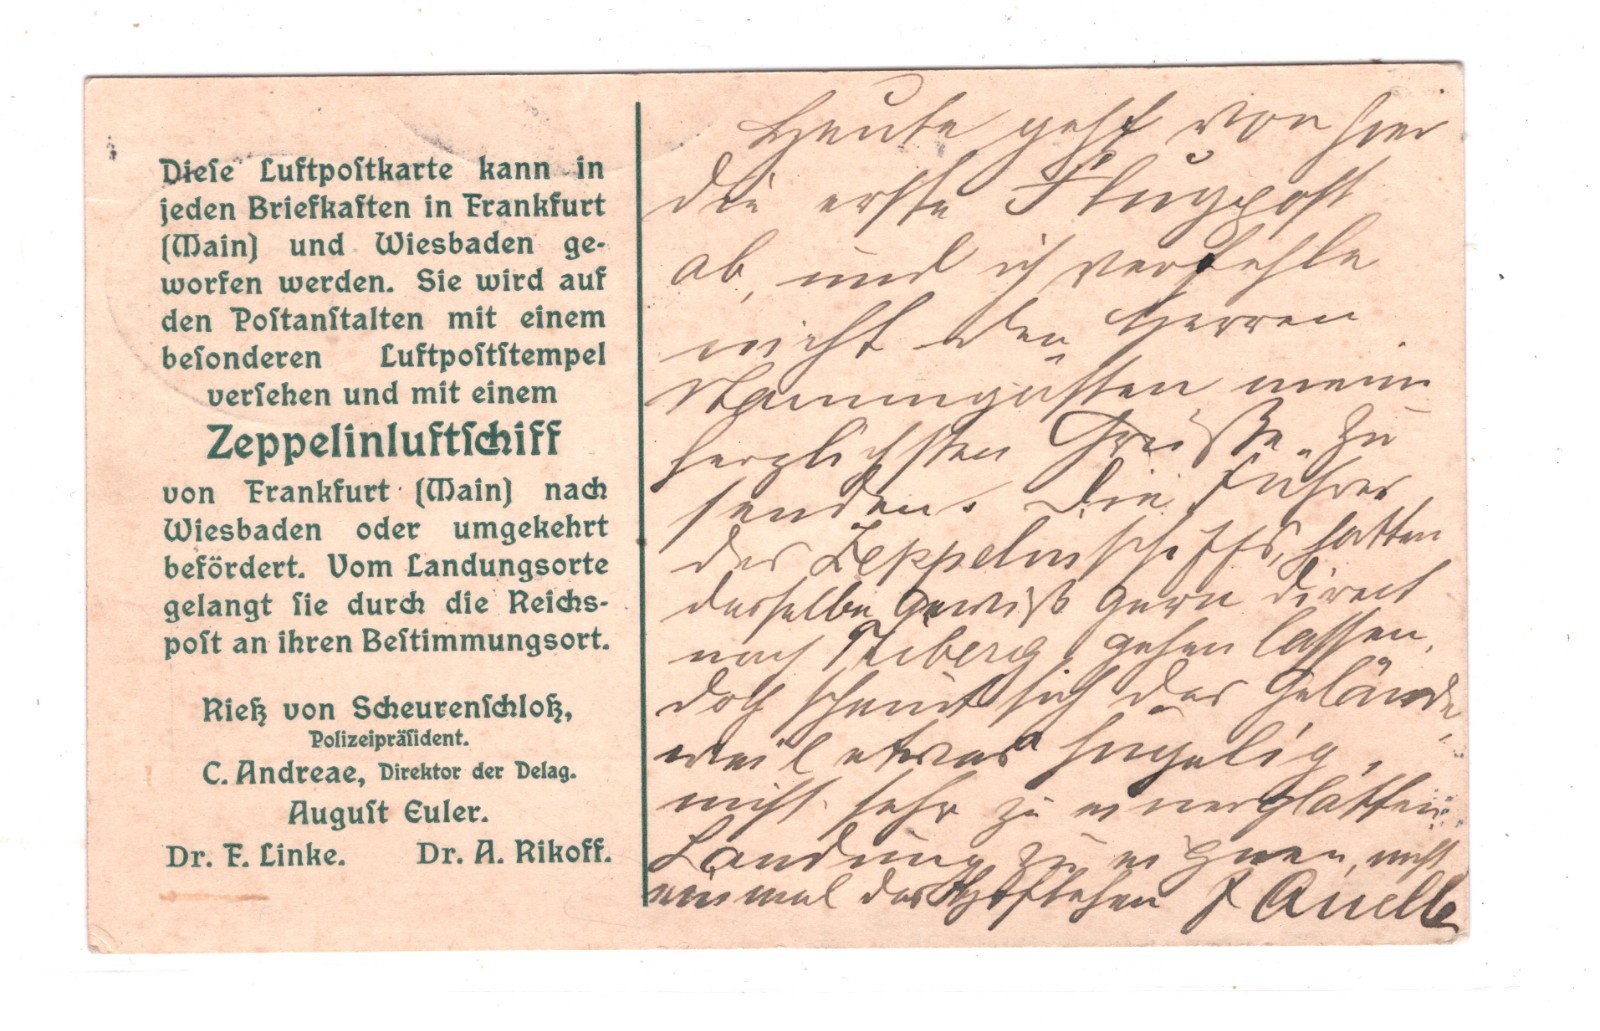 Dieſe Luftpoſtkarte kann in
jeden Briefkaſten in Frankfurt
(Main) und Wiesbaden ge-
worfen werden. Sie wird auf
den Poſtanſtalten mit einem
beſonderen Luftpoſtſtempel
verſehen und mit einem
Zeppelinluftſchiff
von Frankfurt (Main) nach
Wiesbaden oder umgekehrt
befördert. Vom Landungsorte
gelangt ſie durch die Reichs-
poſt an ihren Beſtimmungsort.
Rieß von Scheurenſchloß,
Polizeipräſident.
C. Andreae, Direktor der Delag.
Auguſt Euler.
Dr. F. Linke. Dr. A. Rikoff.
Heute geht von hier
die erste Flugpost
ab, und ich verfehle
nicht den Herren
Stammgästen mein
herzlichsten Grüße zu
senden. Die Führer
des Zeppelinschiffs, hätten
dasselbe gewiß gern direct
nach Triberg gehen lassen,
doch scheint sich das Gelände,
weil etwas hügelig,
nicht sehr zu einer glatten
Landung zu eignen, nicht
einmal das